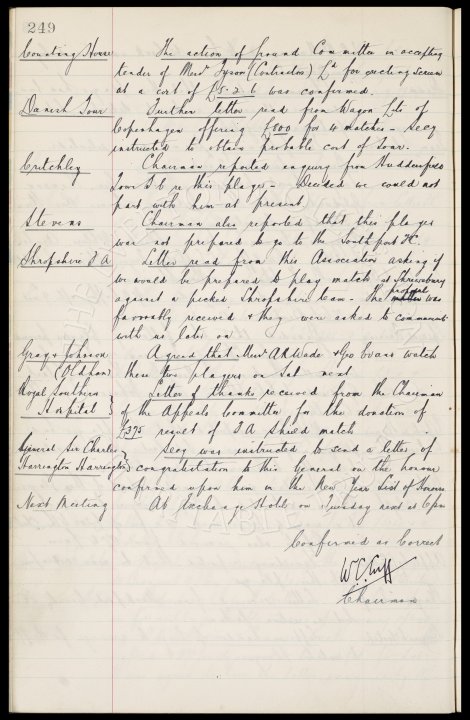 249
Counting House The action of Ground Committee in accepting
tender of Messrs Tyson (Contractors) Ld for erecting screen
at a cost of £5-2-6 was confirmed.
Danish Tour Further letter read from Wagon Lits of
Copenhagen offering £800 for 4 matches - Secy
instructed to obtain probable cost of tour.
Critchley Chairman reported enquiry from Huddersfield
Town F C re this player - Decided we could not
part with him at present
Stevens Chairman also reported that this player
was not prepared to go to the Southport FC.
Shropshire F A Letter read from this Association asking if
we would be prepared to play match at Shrewsbury
against a picked Shropshire team. The matter project was
favorably received & they were asked to communicate
with us later on
Gray & Johnson Agreed that Messrs A R Wade & Geo Evans watch
(Oldham) these two players on Sat next
Royal Southern Letter of thanks received from the Chairman
Hospital of the Appeals Committee for the donation of
£375 result of F A Shield match
General Sir Charles Secy was instructed to send a letter of
Harrington Harrington congratulation to this General on the honour
conferred upon him in the New Year List of Honours
Next Meeting At Exchange Hotel on Tuesday next at 6pm
Confirmed as Correct
W.C. Cuff
Chairman